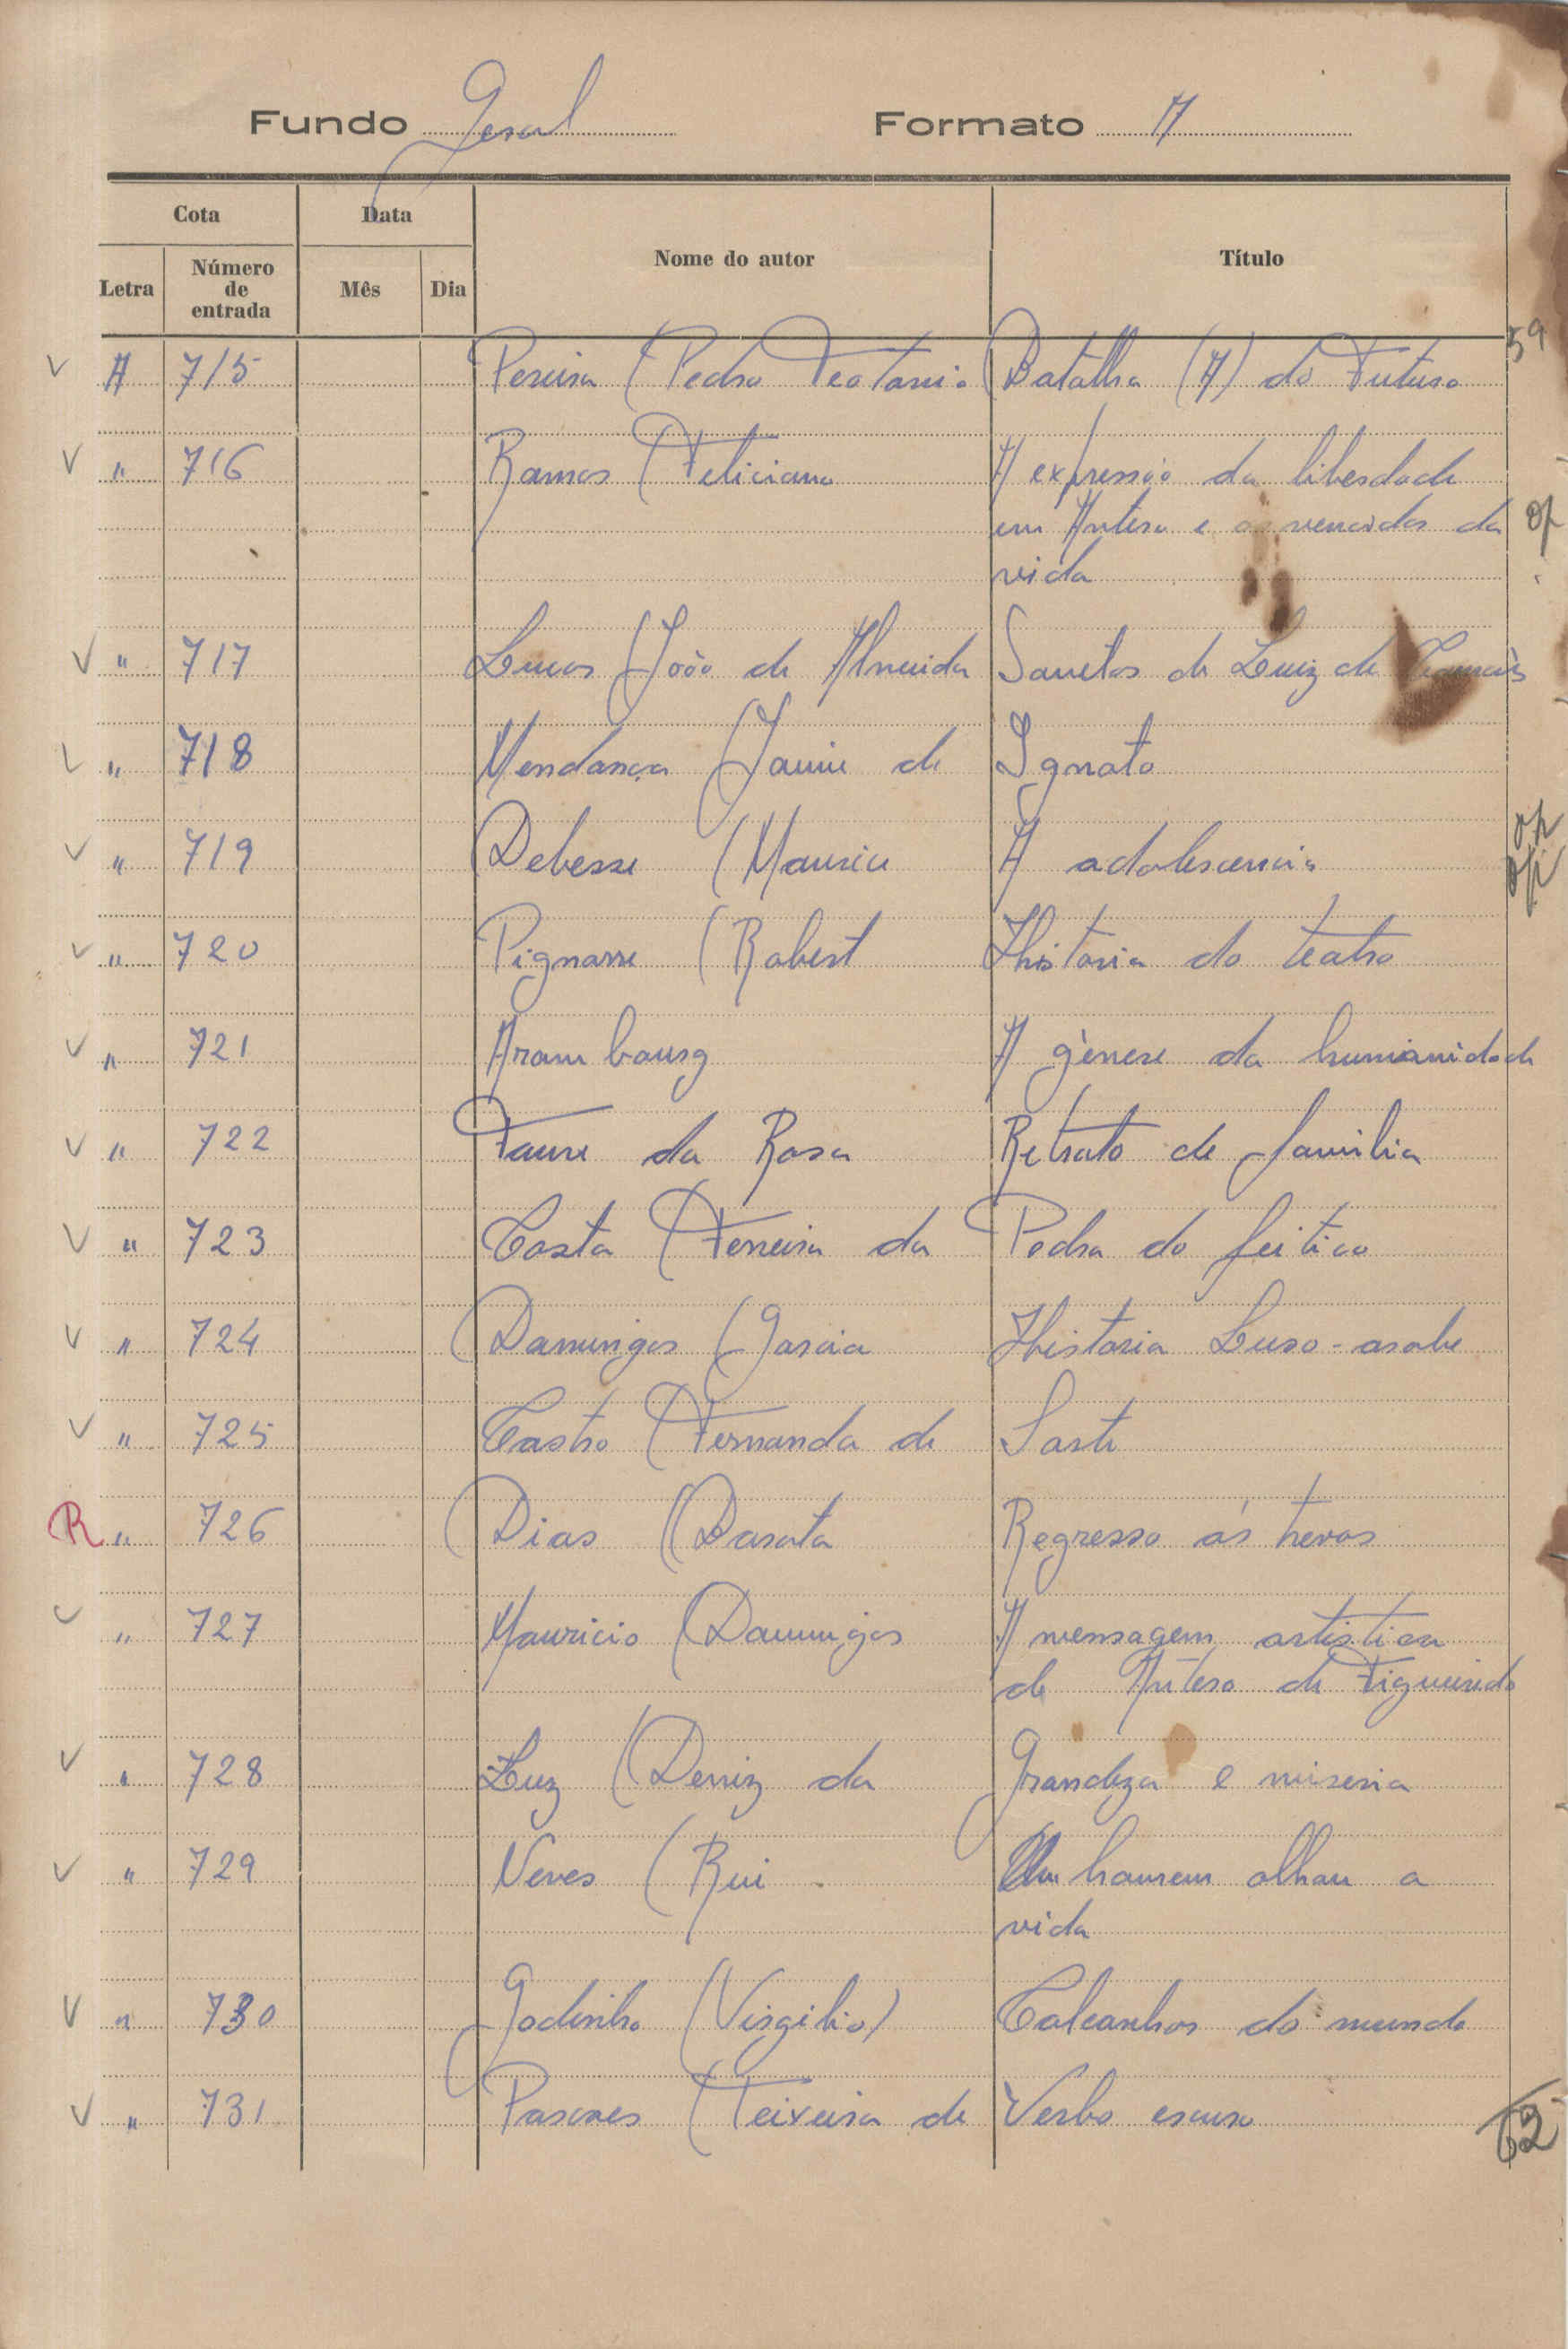 Fundo Geral Formato A
Cota Data Nome do autor Título
Letra Número de entrada Mês Dia
59
V A 715 Pereira (Pedro Teotonio Batalha (A) do Futuro
V " 716 Ramos (Feliciano A expressão da liberdade
em Antero e os vencidos da op
vida
V " 717 Lucas (João de Almeida Sonetos de Luiz de Camões
V " 718 Mendonça (Jaime de Ignoto
op
V " 719 Debesse (Maurice A adolescencia op
V " 720 Pignarre (Robert Historia do teatro
V " 721 Arambourg A gènese da humanidade
V " 722 Faure da Rosa Retrato de familia
V " 723 Costa (Ferreira da Pedra do feitico
V " 724 Domingos (Garcia Historia Luso-arabe
V " 725 Castro (Fernanda de Sorte
R " 726 Dias (Saturio Regresso ás trevas
V " 727 Mauricio (Domingos A mensagem artistica
de Antero de Figueiredo
V " 728 Luz (Deniz da Grandeza e miseria
V " 729 Neves (Rui Um homem olhou a
vida
V " 730 Godinho (Virgilio) Calcanhar do mundo
V " 731 Pascoaes (Teixeira de Verbo escuro
62